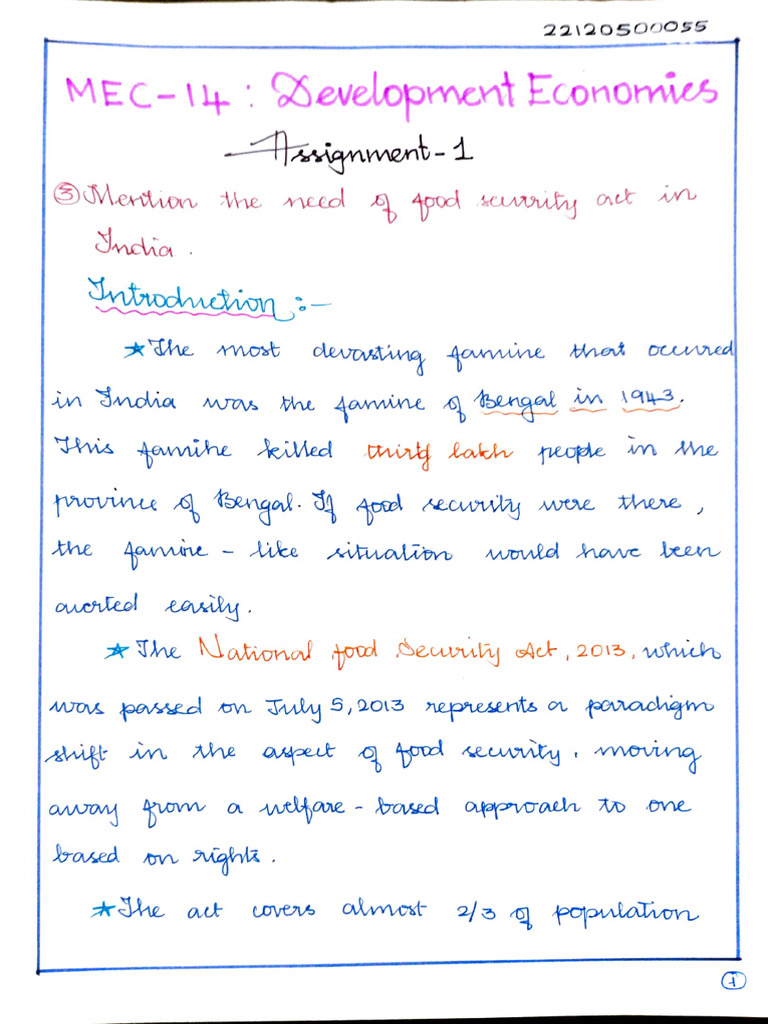 22120500055
MEC-14 : Development Economics
Assignment-1
③ Mention the need of food security act in
India .
Introduction :-
★ The most devasting famine that occured
in India was the famine of Bengal in 1943.
This famine killed thirty lakh people in the
province of Bengal. If food security were there ,
the famine - like situation would have been
averted easily.
★ The National food Security Act, 2013, which
was passed on July 5, 2013 represents a paradigm
shift in the aspect of food security, moving
away from a welfare - based approach to one
based on rights.
★ The act covers almost 2/3 of population
1